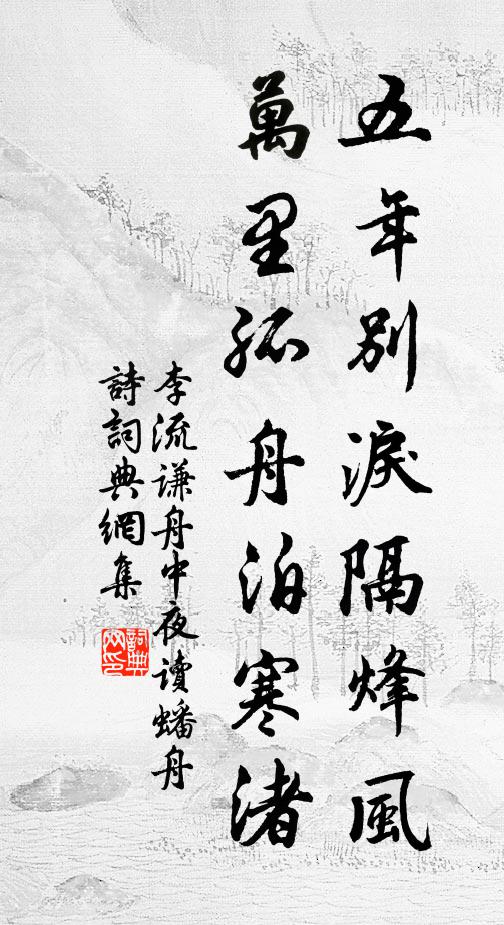 五年別淚隔烽風
萬里孤舟泊寒渚
李流謙舟中夜讀蟠舟
詩詞典網集
詞典
网印